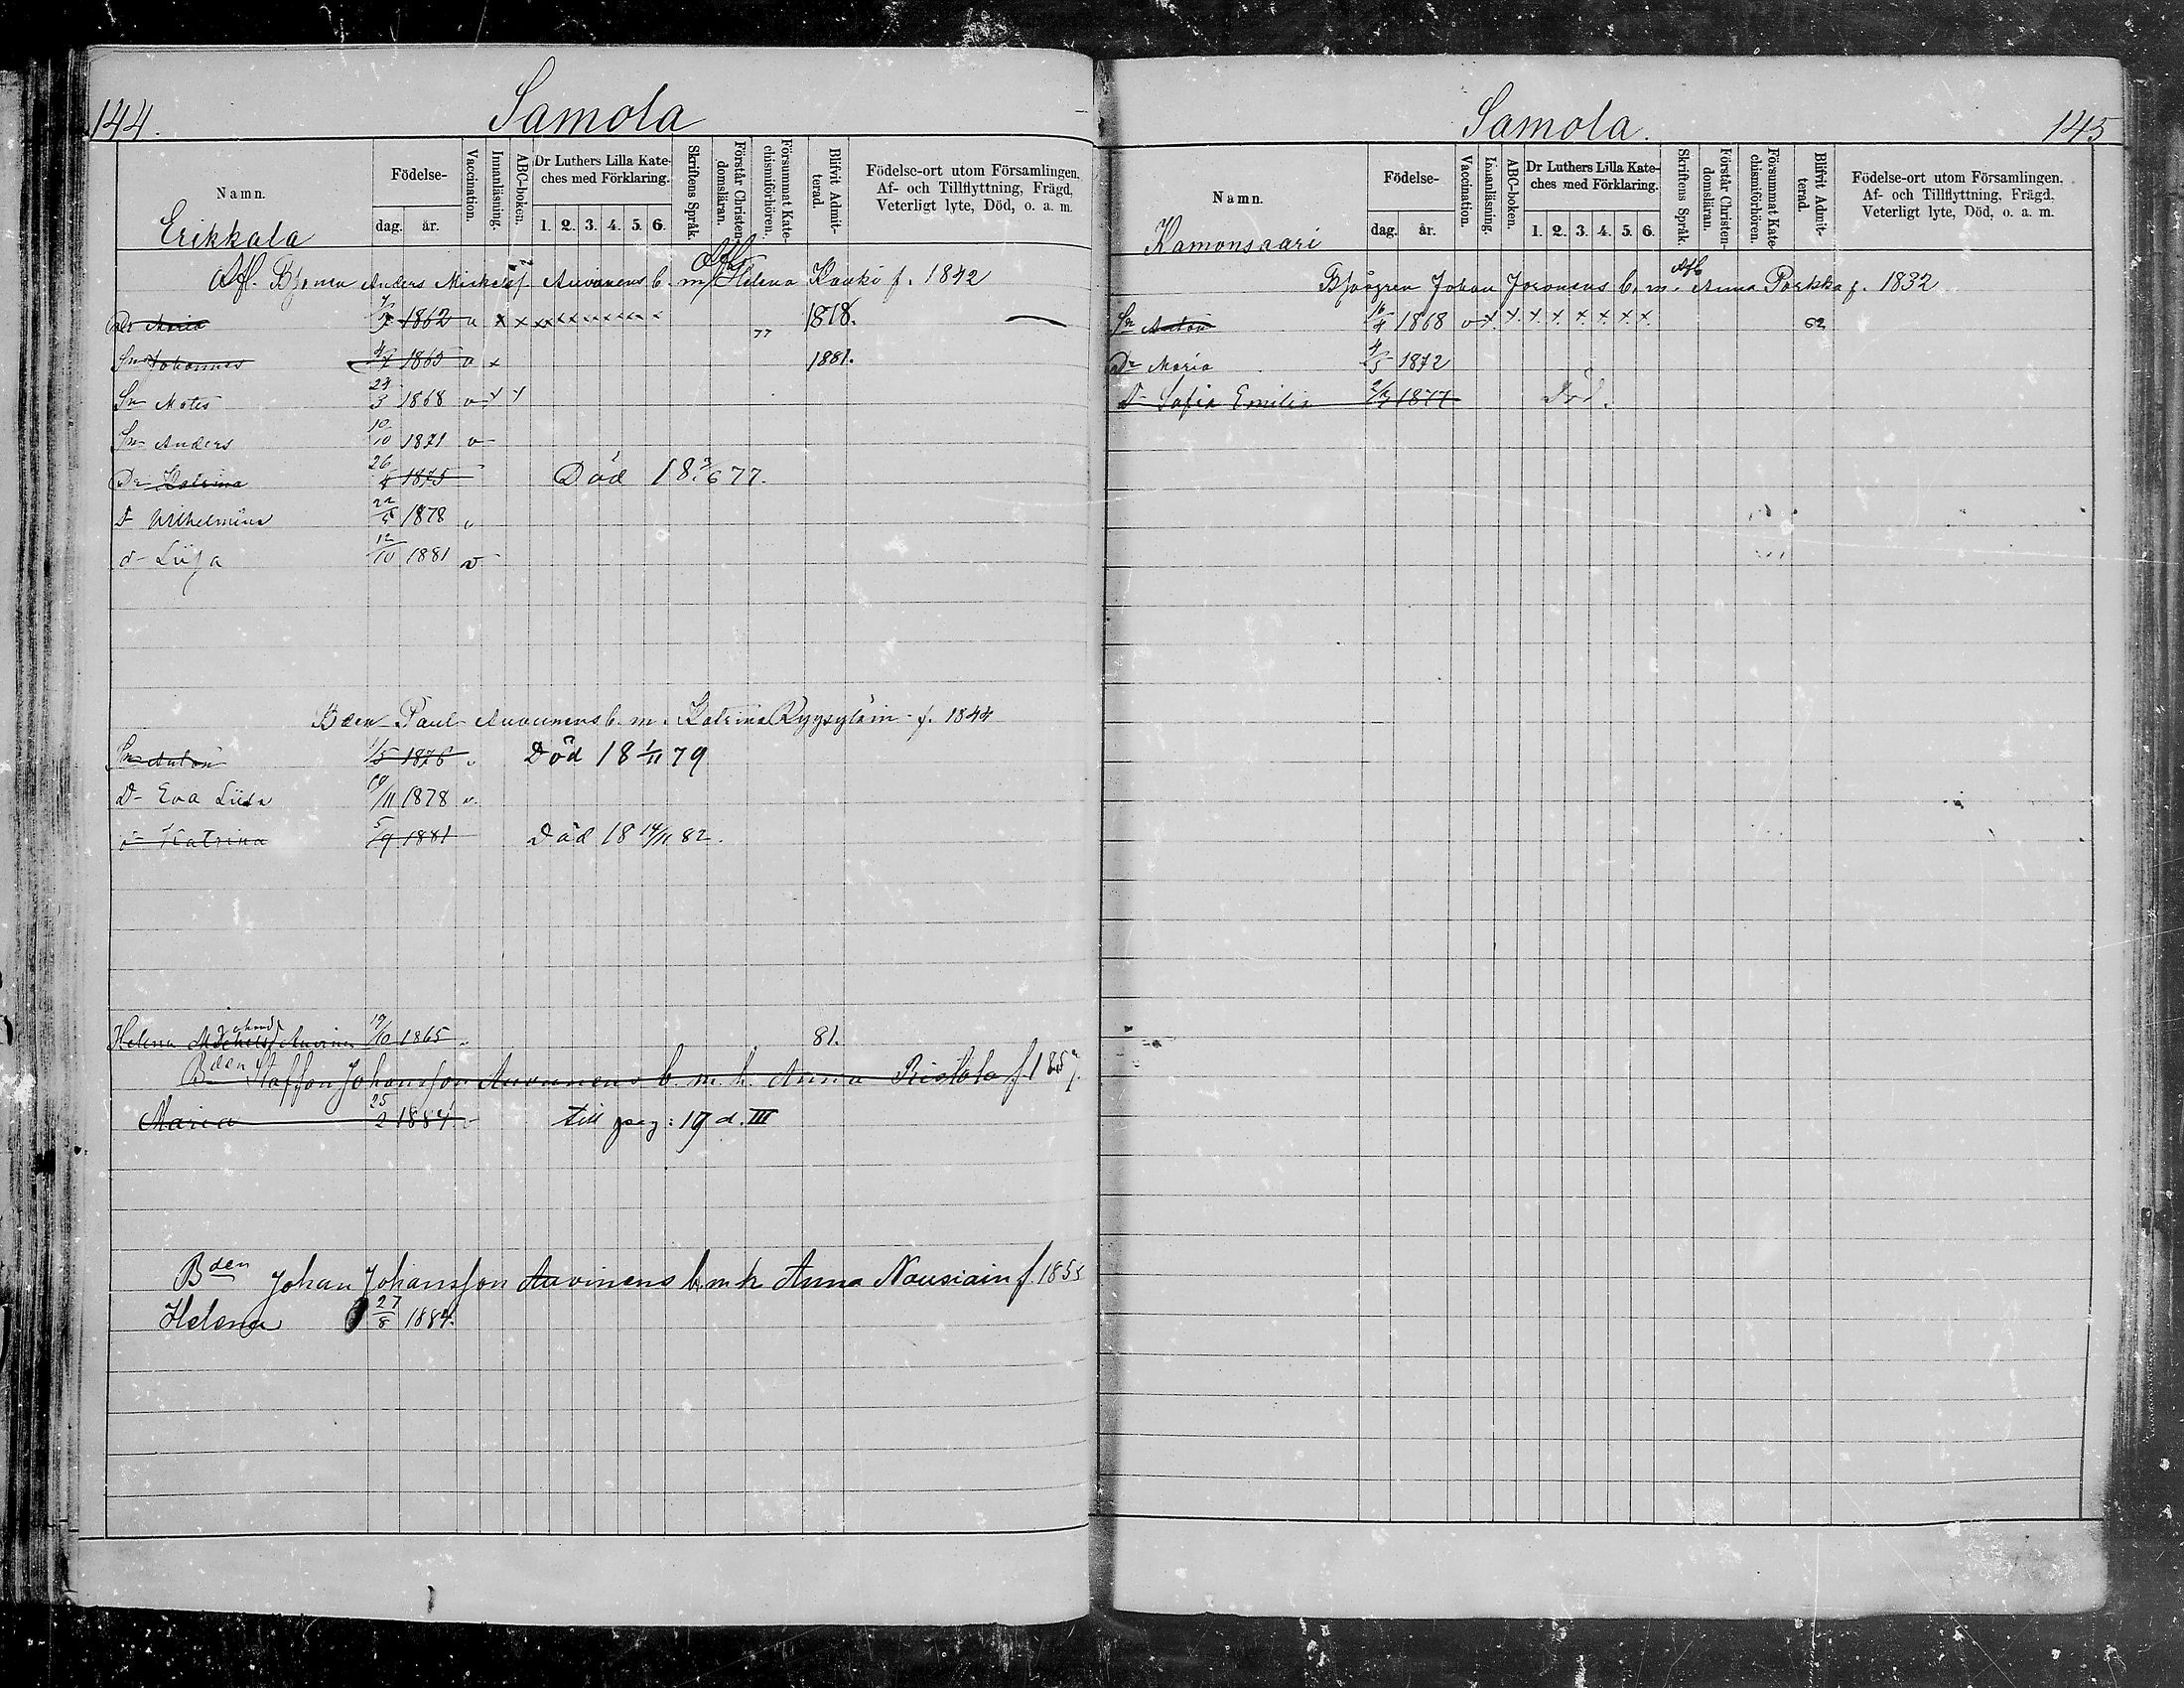 144.
Samola
Namn.
Födelse-
dag. år.
Vaccination.
Innanläsning.
ABC-boken.
Dr Luthers Lilla Kate-
ches med Förklaring.
1. 2. 3. 4. 5. 6.
Skriftens Språk.
Förstår Christen-
domsläran.
Försummat Kate-
chismiförhören.
Blifvit Admit-
terad.
Födelse-ort utom Församlingen,
Af- och Tillflyttning, Frägd,
Veterligt lyte, Död, o. a. m.
Erikkala
Afl. Anders Auvinens b. m. Helena Kauko f. 1842
Maria 1862 v x x x x x x x x x x 77 1878.
Sn Johannes 1865 v x 1881.
Sn Mates 24/3 1868 v x x
Sn Anders 10/10 1871 v
Dr Katrina 26/4 1875 Död 18 3/6 77.
Dr Wilhelmina 22/5 1878 v
dr Liisa 12/10 1881 v
Paul Auvinens b. m. Katrina f. 1844
Sn Anton 1/5 1876 v Död 18 1/11 79
Dr Eva Liisa 1878 v.
dr Katrina 5/9 1881 Död 18 14/11 82.
Helena Auvinen 19/10 1865 81.
Bden Staffan Johansson Auvinens b. m. h. Anna Ristola f. 1857.
Maria 25/2 1884 v till pag: 19 d. III
Bden Johan Johansson Auvinens b. m. h Anna Nousiain f. 1855
Helena 27/8 1884.
Samola.
145
Namn.
Födelse-
dag. år.
Vaccination.
Innanläsning.
ABC-boken.
Dr Luthers Lilla Kate-
ches med Förklaring.
1. 2. 3. 4. 5. 6.
Skriftens Språk.
Förstår Christen-
domsläran.
Försummat Kate-
chismiförhören.
Blifvit Admit-
terad.
Födelse-ort utom Församlingen,
Af- och Tillflyttning, Frägd,
Veterligt lyte, Död, o. a. m.
Kamonsaari
Johan Joronens b. m. Afl. Anna Porkka f. 1832
Sn Anton 16/4 1868 v x. x. x. x. x. x. x. x.
Dr Maria 4/5 1872
Dr Sofia Emilia 1877 Död.